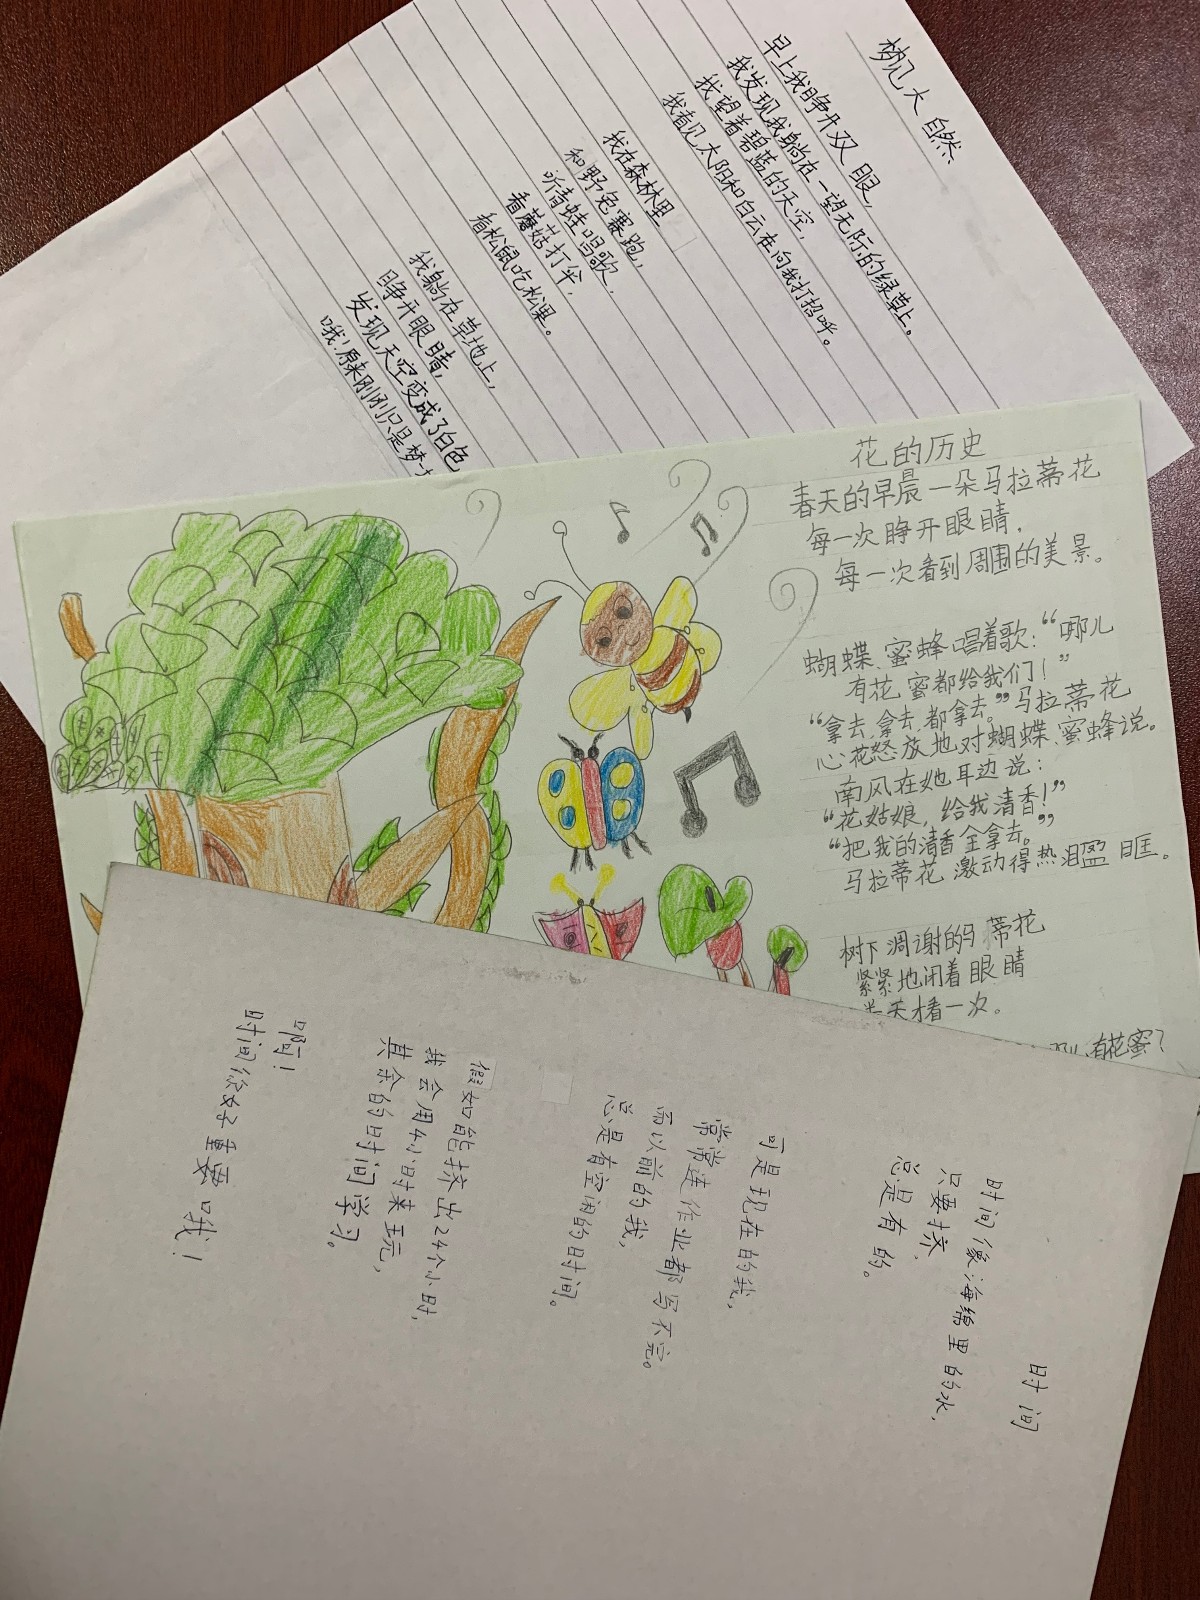 梦见大自然
早上我睁开双眼，
我发现我躺在一望无际的绿草上。
我望着碧蓝的天空，
我看见太阳和白云在向我打招呼。
我在森林里
和野兔赛跑，
听青蛙唱歌，
看蘑菇打伞，
看松鼠吃松果。
我躺在草地上，
睁开眼睛，
发现天空变成了白色
哦！原来刚刚只是梦
花的历史
春天的早晨一朵马拉蒂花
每一次睁开眼睛，
每一次看到周围的美景。
蝴蝶、蜜蜂唱着歌：“哪儿
有花蜜都给我们！”
“拿去，拿去，都拿去。”马拉蒂花
心花怒放地对蝴蝶、蜜蜂说。
南风在她耳边说：
“花姑娘，给我清香！”
“把我的清香全拿去。”
马拉蒂花激动得热泪盈眶。
树下凋谢的马蒂花
紧紧地闭着眼睛
天才看一次。
有花蜜？
时间
时间像海绵里的水，
只要挤，
总是有的。
可是现在的我，
常常连作业都写不完。
而以前的我，
总是有空闲的时间。
假如能挤出24个小时，
我会用4小时来玩，
其余的时间学习。
啊！
时间你好重要哦！